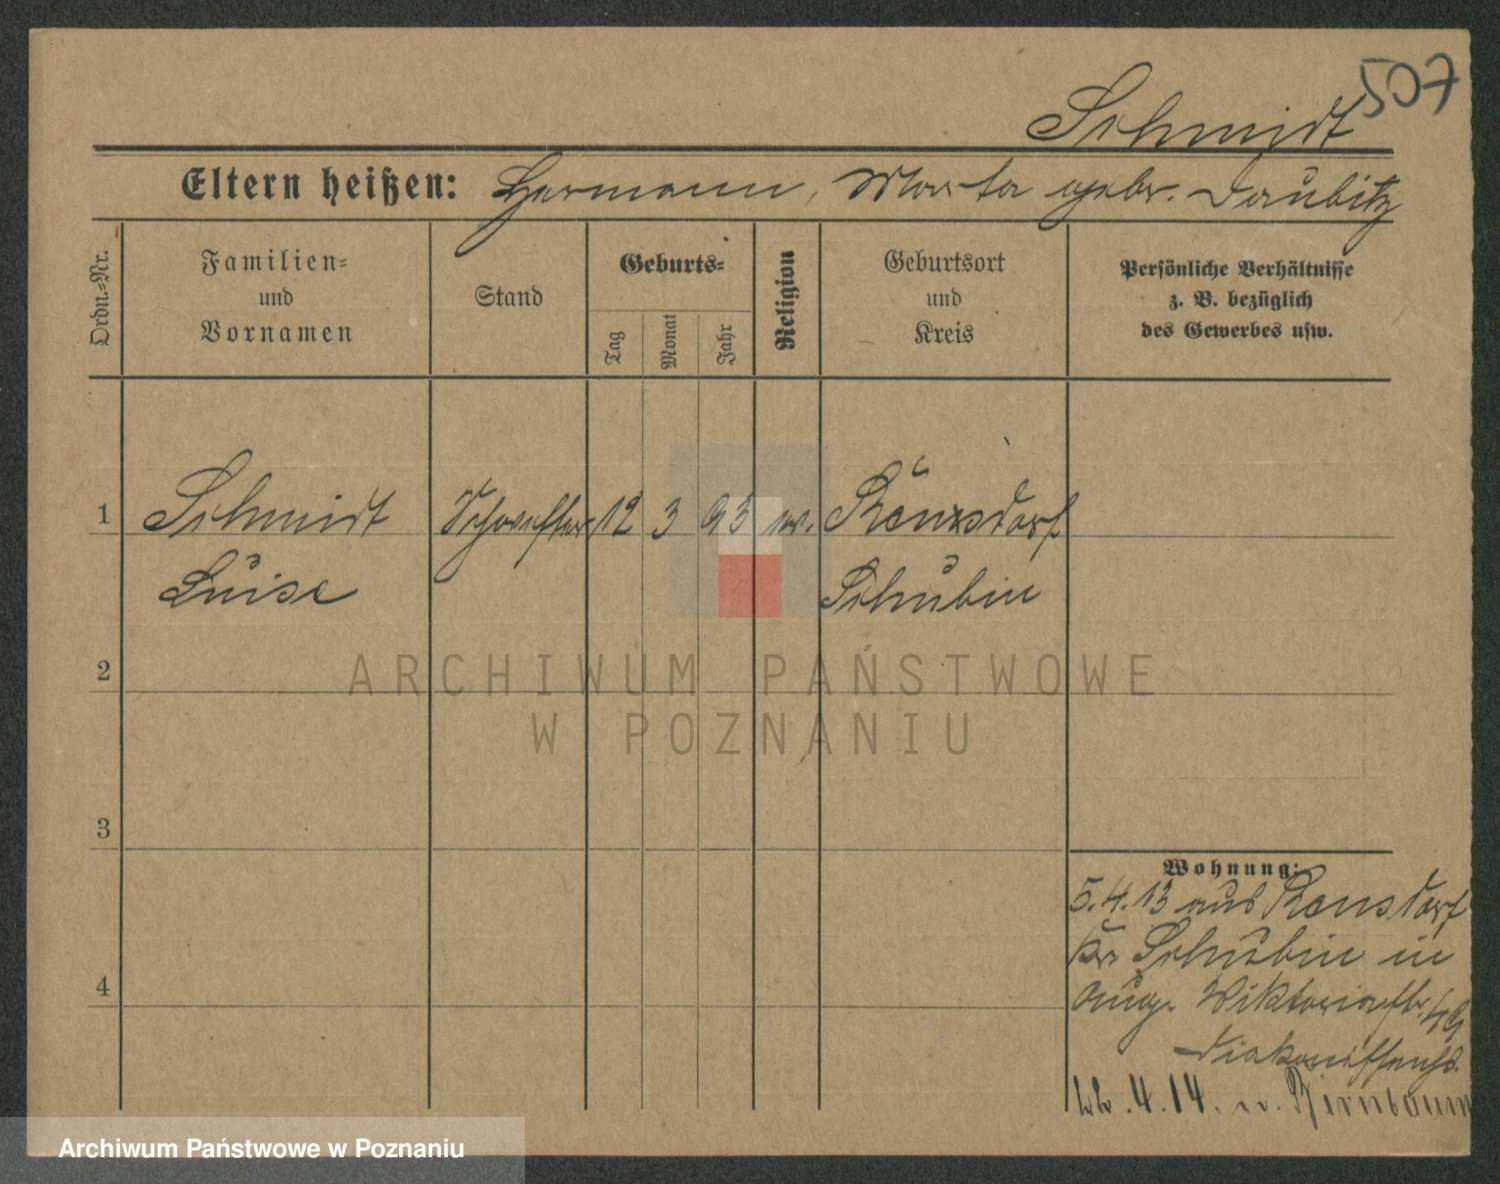 507
Schmidt
Eltern heißen: Hermann, Marta gebr. Taubitz
Ordn.=Nr.
Familien=
und
Vornamen
Stand
Geburts=
Tag
Monat
Jahr
Religion
Geburtsort
und
Kreis
Persönliche Verhältnisse
z. B. bezüglich
des Gewerbes usw.
1 Schmidt Schwester 12 3 93 ev.
Luise Schubin
2
3
4
Wohnung:
5.4.13 aus Rensdorf
Kr. Schubin in
ang. Viktoriastr. 49
Diakonissenhs.
4.14. n. Birnbaum
ARCHIWUM PAŃSTWOWE
W POZNANIU
Archiwum Państwowe w Poznaniu